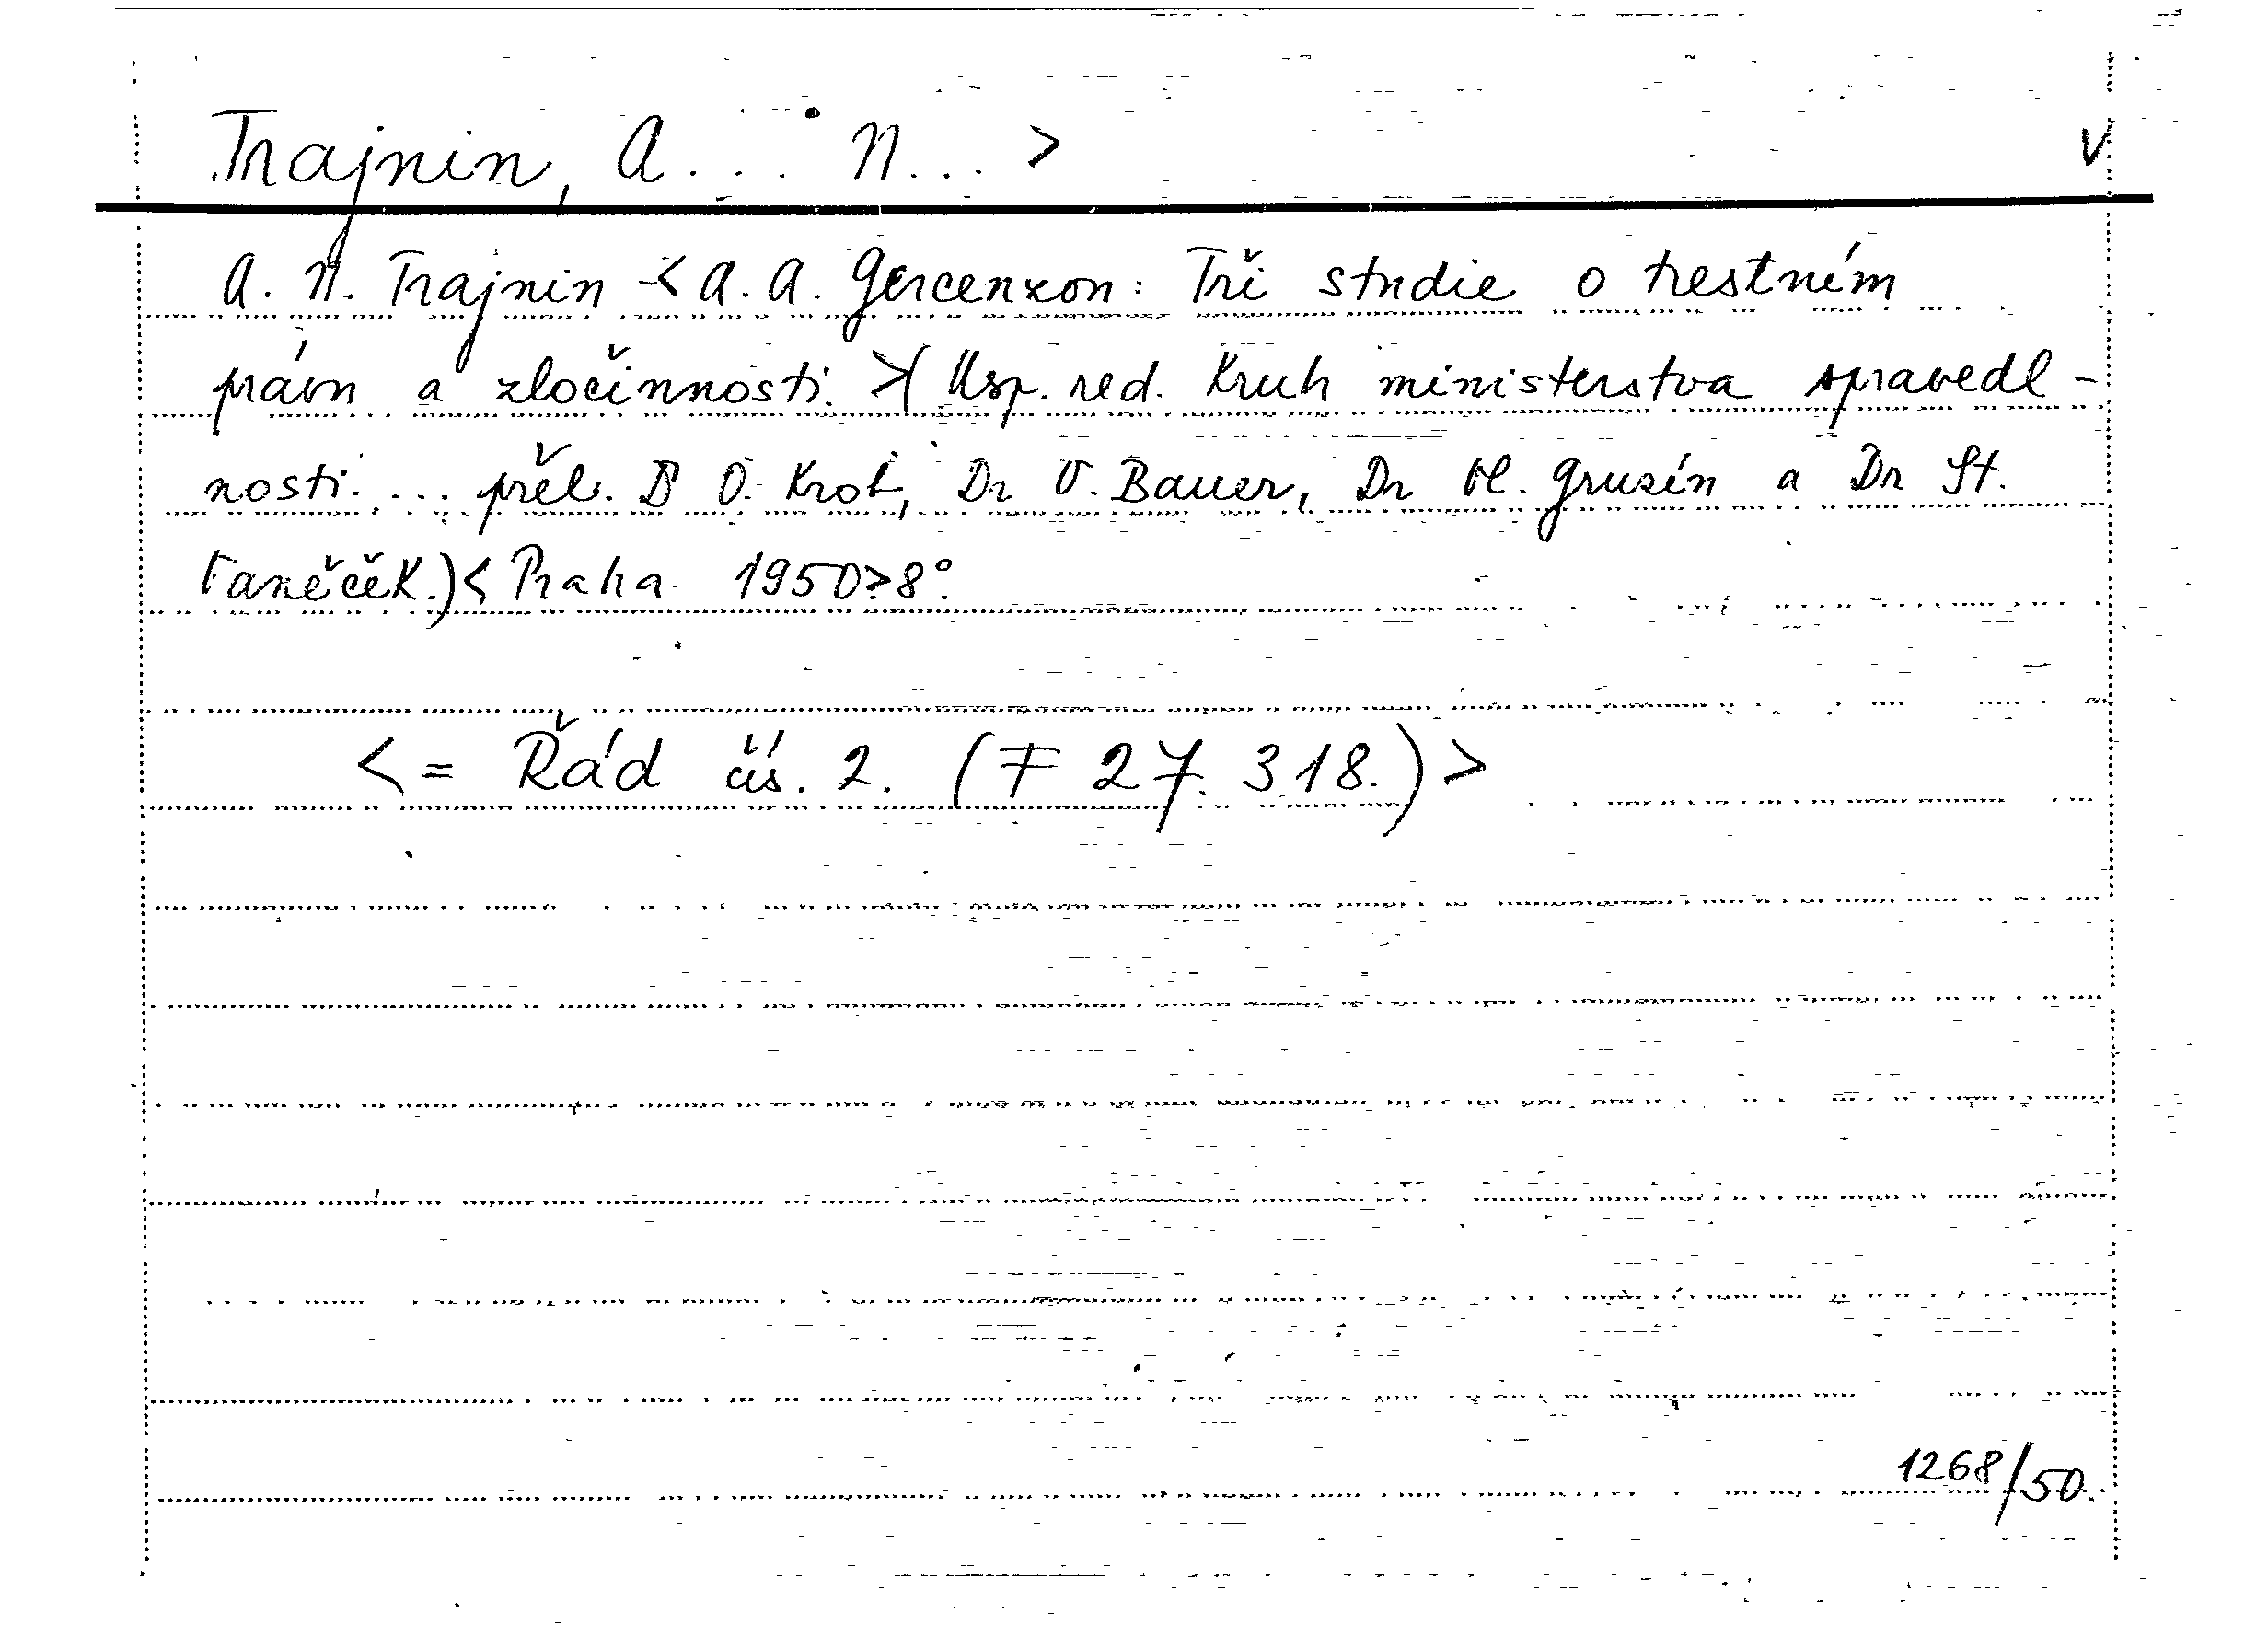 Trajnin, A... N... > v
A. N. Trajnin < A. A. Gercenzon: Tři studie o trestném
právu a zločinnosti. >( Usp. red. Kruh ministerstva spravedl-
nosti. ... přel. D O. Krot, Dr V. Bauer, Dr Vl. Grusín a Dr St.
Vaněček.) < Praha 1950 > 8°.
< = Řád čís. 2. (F 27.318.) >
1268/50.